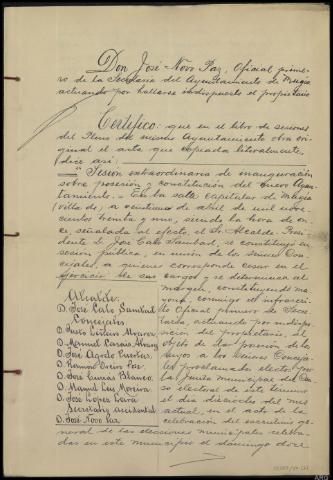 Don José Novo Paz, Oficial prime-
ro de la Secretaria del Ayuntamiento de Mugia
actuando por hallarse indispuesto el propietario
Certifico: que en el libro de sesiones
del Pleno de este Ayuntamiento obra
original el acta que copiada literalmente,
dice asi:
"Sesión extraordinaria de inauguración
sobre posesión y constitución del nuevo Ayun-
tamiento.- En la sala capitular de Mugia
villa de, a veintiuno de abril de mil nove-
cientos treinta y uno, siendo la hora de
once, señalada al efecto, el Sr. Alcalde-Presi-
dente D. José Calo Sambad, se constituyó en
sesión pública, en unión de los señores Con-
cejales, a quienes corresponde cesar en el
ejercicio de sus cargos y se determinan al
margen, constituyendo ma-
yoría, conmigo el infrascri-
to Oficial primero de Secre-
taría, actuando por indispo-
sición del propietario, al
objeto de dar posesión de los
suyos a los Señores Conceja-
les proclamados electos por
la Junta municipal del Cen-
so electoral de este término
el dia dieciocho del mes
actual, en el acto de la
celebración del escrutinio ge-
neral de las elecciones municipales celebra-
das en este municipio el domingo doce
Alcalde:
D. José Calo Sambad
Concejales
D. Justo
D. Manuel
D. José Agulo
D. Ramón
D. José Blanco
D. Manuel Leis Moreira
D. José Lopez Leira
Secretario accidental
D. José Novo Paz